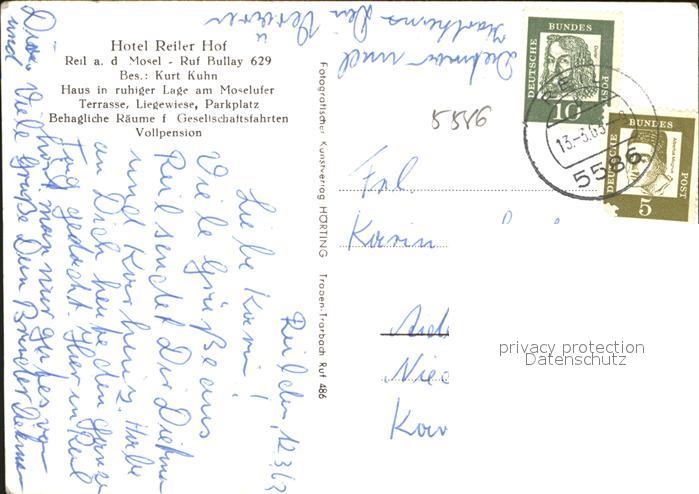 Hotel Reiler Hof
Reil a. d Mosel - Ruf Bullay 629
Bes.: Kurt Kuhn
Haus in ruhiger Lage am Moselufer
Terrasse, Liegewiese, Parkplatz
Behagliche Räume f Gesellschaftsfahrten
Vollpension
Reil den, 12.3.63
Liebe Karin!
Viele Grüße aus
Reil sendet Dir Dietmar
und Karlheinz. Habe
an Dich heute den ganzen
Tag gedacht. Hier in Reil
hört man nur gutes von
Dir. Viele Grüße Dein Bruder Dietmar
und
Dietmar und
Karlheinz
Fotografischer Kunstverlag HÖRTING Traben-Trarbach Ruf 486
5586
Frl.
Karin
DEUTSCHE BUNDES POST
10
DEUTSCHE BUNDES POST
5
13.-3.63
5586
privacy protection
Datenschutz